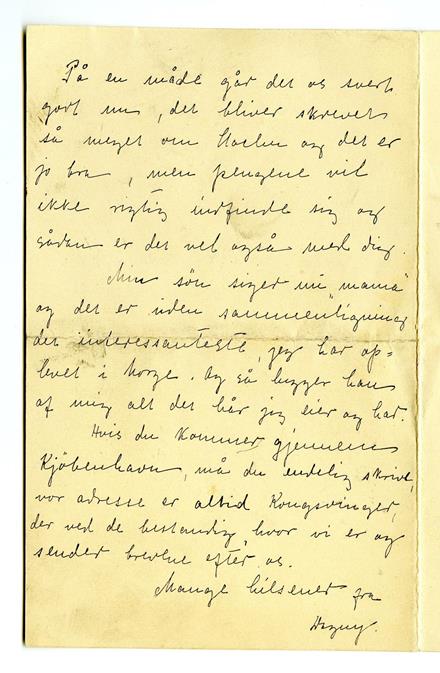 På en måde går det os svert
godt nu, det bliver skrevet
så meget om Stachu og det er
jo bra, men pengene vil
ikke rigtig indfinde sig og
sådan er det vel også med dig.
Min søn siger nu "mama"
og det er uden sammenligning
det interessanteste, jeg har op=
levet i Norge. Og så bygger han
af mig alt det hår jeg eier og har.
Hvis du kommer gjennem
Kjöbenhavn, må du endelig skrive,
vor adresse er altid Kongsvinger,
der ved de bestandig, hvor vi er og
sender brevene efter os.
Mange hilsener fra
Dagny.